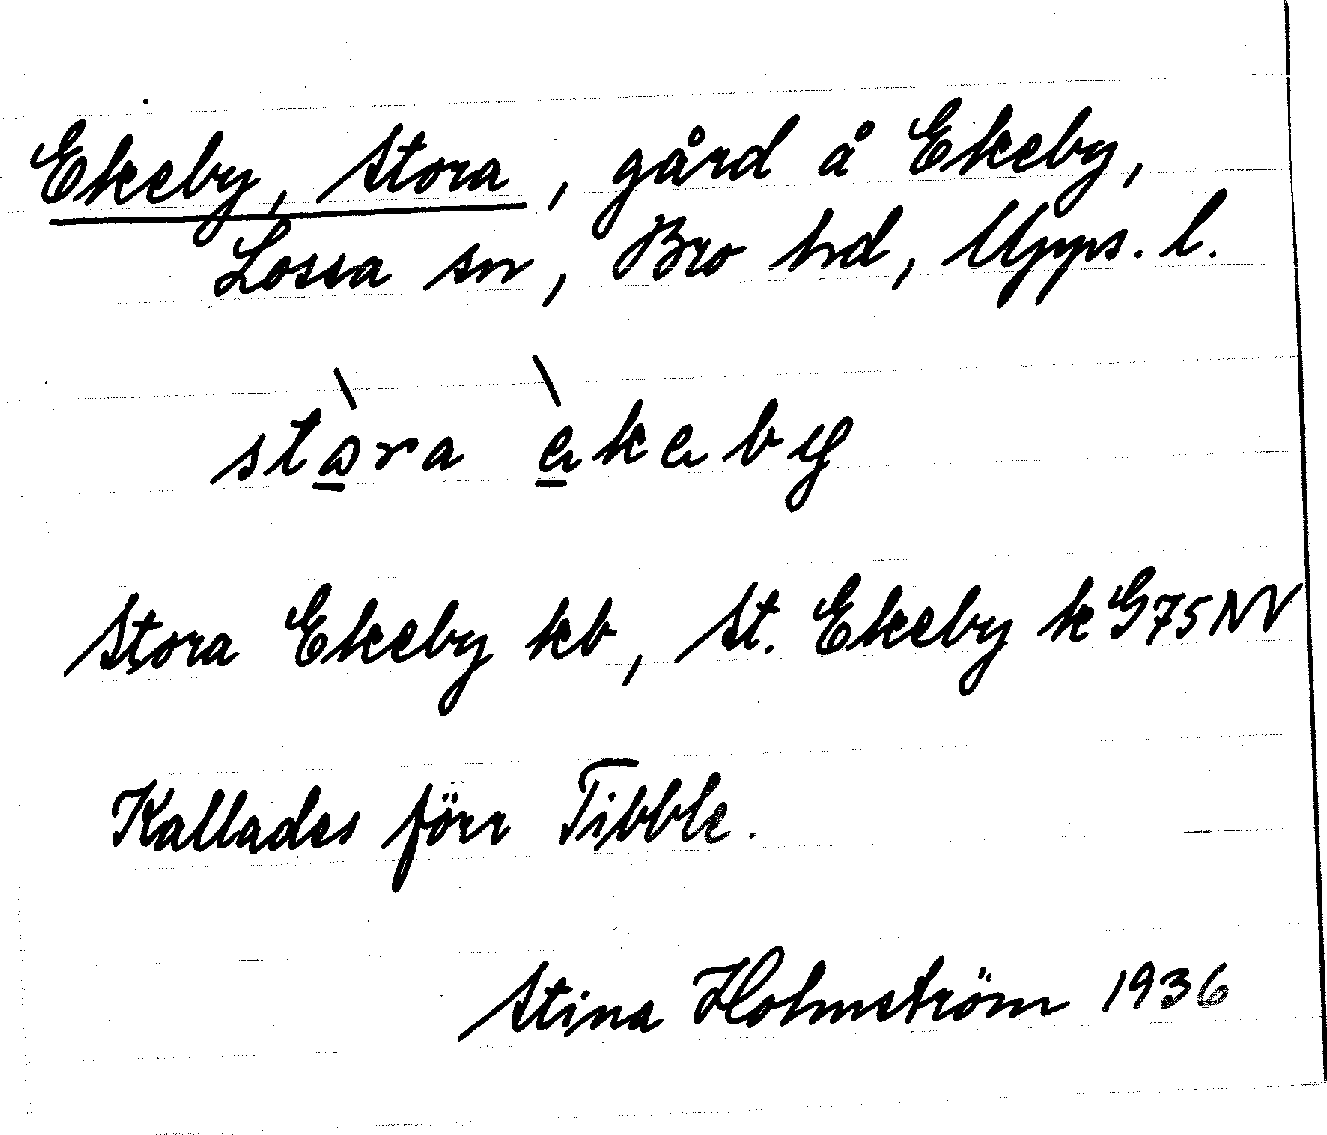 Ekeby, Stora, gård å Ekeby,
Lossa sn, Bro hd, Upps. l.
stò̱ra è̱keby
Stora Ekeby kb, St. Ekeby k G75NV
Kallades förr Tibble.
Stina Holmström 1936